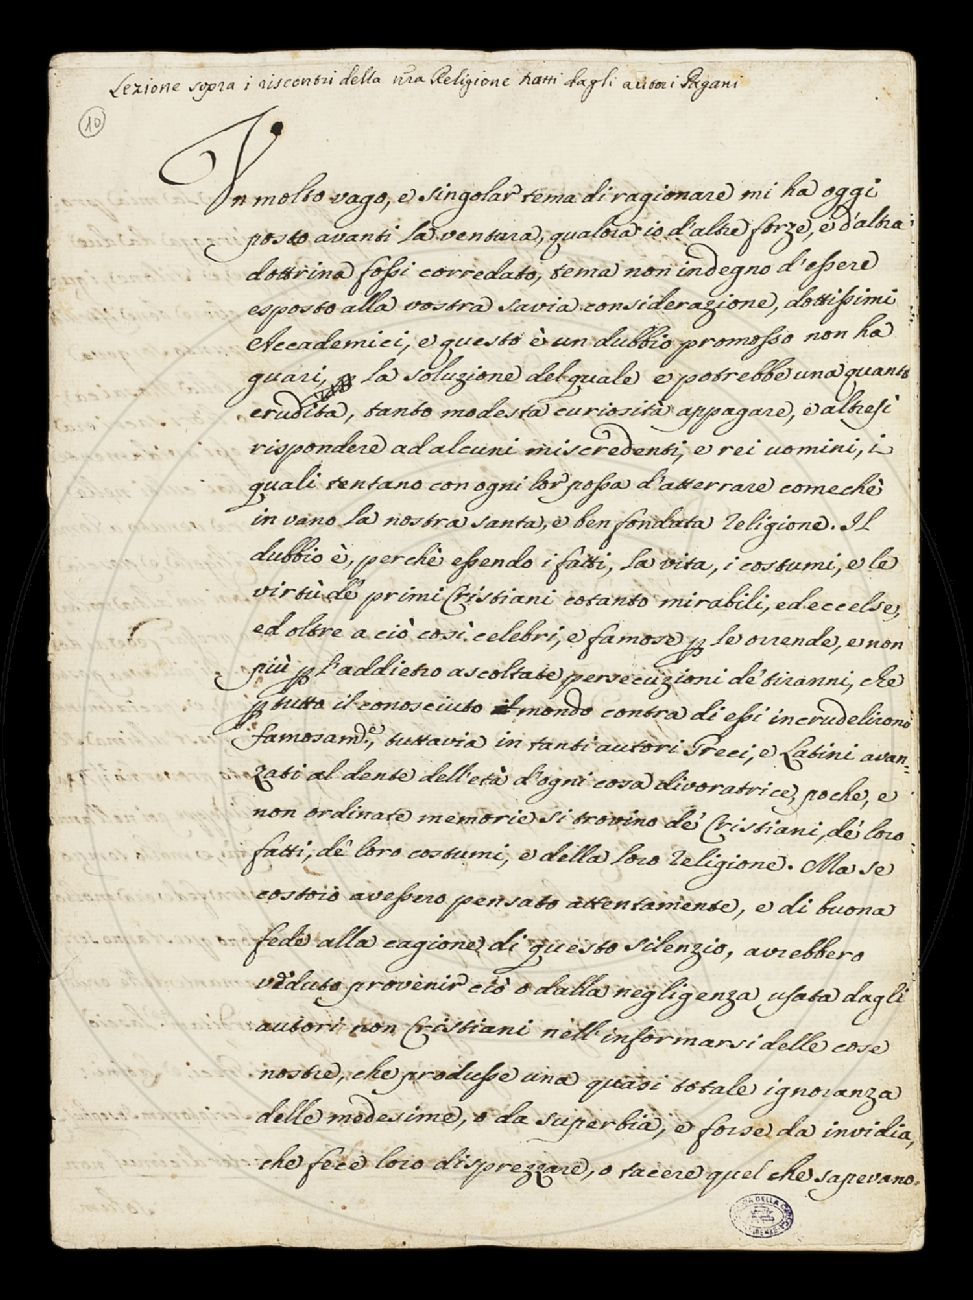 Lezione sopra i riscontri della nra Religione tratti dagli autori Pagani
10
Un molto vago, e singolar tema di ragionare mi ha oggi
posto avanti la ventura, qualora io d'altre forze, e d'altra
dottrina fossi corredato, tema non indegno d'essere
esposto alla vostra savia considerazione, dottissimi
Accademici, e questo è un dubbio promosso non ha
guari, la soluzione del quale e potrebbe una quanto
erudita, tanto modesta curiosità appagare, e altresì
rispondere ad alcuni miscredenti, e rei uomini, i
quali tentano con ogni lor possa d'atterrare comechè
in vano la nostra santa, e ben fondata Religione. Il
dubbio è, perchè essendo i fatti, la vita, i costumi, e le
virtù de' primi Cristiani cotanto mirabili, ed eccelse,
ed oltre a ciò così celebri, e famose p le orrende, e non
più p l'addietro ascoltate persecuzioni de' tiranni, che
p tutto il conosciuto mondo contra di essi incrudelirono
famosam.e, tuttavia in tanti autori Greci, e Latini avan-
zati al dente dell'età d'ogni cosa divoratrice, poche, e
non ordinate memorie si trovino de' Cristiani, de' loro
fatti, de' loro costumi, e della loro Religione. Ma se
costoro avessero pensato attentamente, e di buona
fede alla cagione di questo silenzio, avrebbero
veduto provenir ciò o dalla negligenza usata dagli
autori non Cristiani nell'informarsi delle cose
nostre, che produsse una quasi totale ignoranza
delle medesime, o da superbia, e forse da invidia,
che fece loro disprezzare, o tacere quel che sapevano.